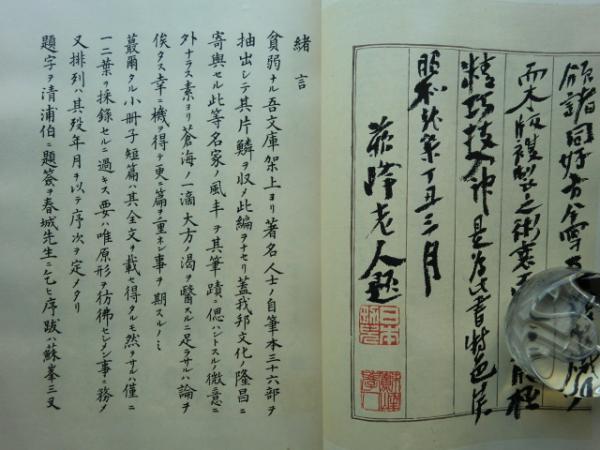 頒諸同好
而木版複製之術
精巧技入神是為此書特色矣
丁丑三月
蘇峰老人題
緒言
貧弱ナル吾文庫架上ヨリ著名人士ノ自筆本三十六部ヲ
抽出シテ其片鱗ヲ収メ此編ヲナセリ蓋我邦文化ノ隆昌ニ
寄與セル此等名家ノ風丰ヲ其筆蹟ニ偲ハントスルノ微意ニ
外ナラス素ヨリ蒼海ノ一滴大方ノ渇ヲ醫スルニ足ラサルハ論ヲ
俟タス幸ニ機ヲ得テ更ニ篇ヲ重ネン事ヲ期スルノミ
蕞爾タル小冊子短篇ハ其全文ヲ載セ得タルモ然ラサルハ僅ニ
一二葉ヲ採錄セルニ過キス要ハ唯原形ヲ彷彿セシメン事ニ務メ
又排列ハ其歿年月ヲ以テ序次ヲ定メタリ
題字ヲ清浦伯ニ題簽ヲ春城先生ニ乞ヒ序跋ハ蘇峯三叉